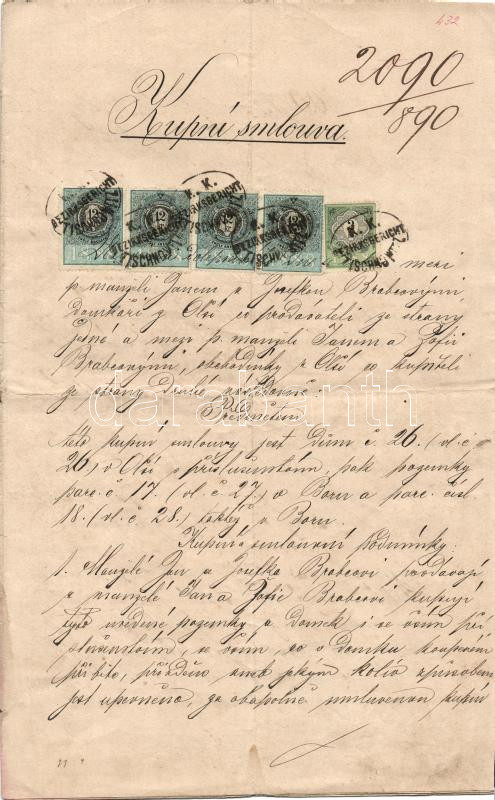 432
2090
890
Kupní smlouva.
12 12 12 12 5
K. K. BEZIRKSGERICHT
mezi
p. manželi Janem a Josefkou Brabcovými
domkáři z Olší co prodavateli ze strany
jedné a mezi p. manželi Janem a Žofií
Brabcovými, obchodníky z Olší co kupiteli
ze strany druhé
Předmětem
této kupní smlouvy jest dům č 26. (vl. č.
26) v Olší s příslušenstvím, pak pozemky
parc. č 17. (vl. č 27.) v Boru a parc. čísl
18. (vl. č. 28.) taktéž v Boru.
Kupní a smluvní podmínky
1. Manželé Jan a Josefka Brabcovi prodávají
a manželé Jan a Žofie Brabcovi kupují
tyto uvedené pozemky a domek i se vším pří
slušenstvím, a vším, co v domku
přibito, aneb jakým koliv způsobem
jest upevněno, za obapolně smluvenou kupní
darabanth